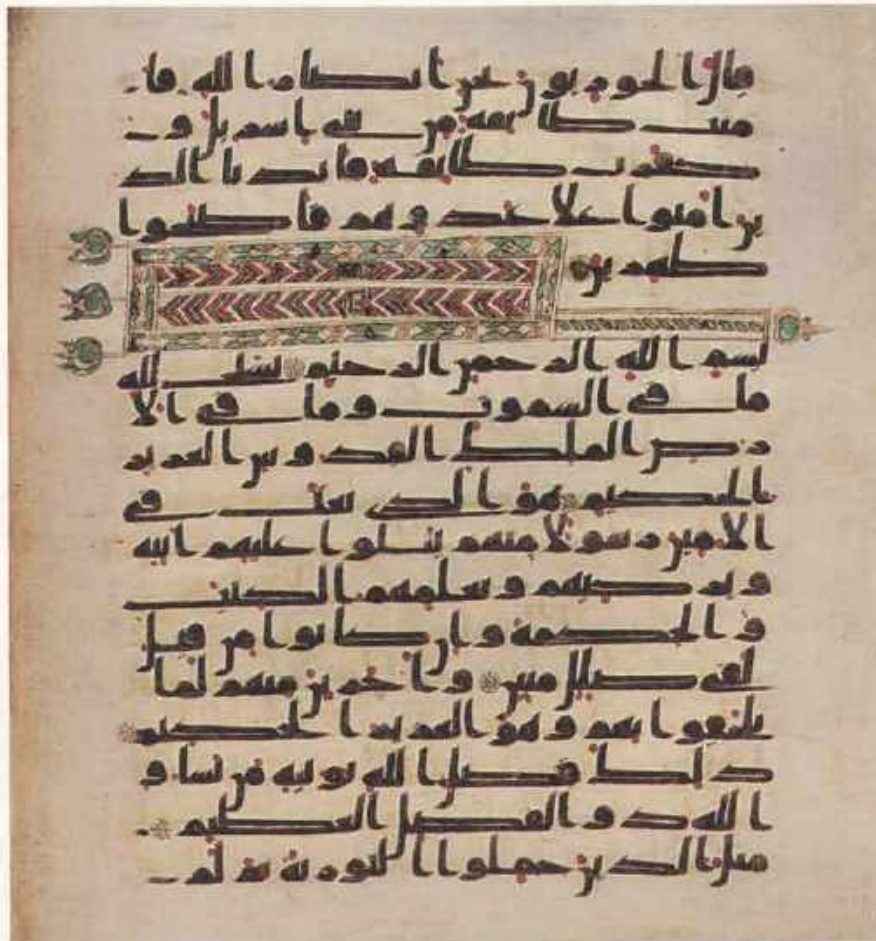 قال الحوريون نحن انصار الله فا
منت طايفه من بني اسريل و
كفرت طايفه فايدنا الذ
ين امنوا علا عدوهم فاصبحوا
ظهرين
بسم الله الرحمن الرحيم يسبح لله
ما في السموت وما في الا
رض الملك القدوس العزيز
الحكيم هو الذي بعث في
الامين رسولا منهم يتلوا عليهم ايته
ويزكيهم ويعلمهم الكتب
والحكمة وان كانوا من قبل
لفي ضلل مبين واخرين منهم لما
يلحقوا بهم وهو العزيز الحكيم
ذلك فضل الله يوتيه من يشا و
الله ذو الفضل العظيم
مثل الذين حملوا التوريه ثم لم